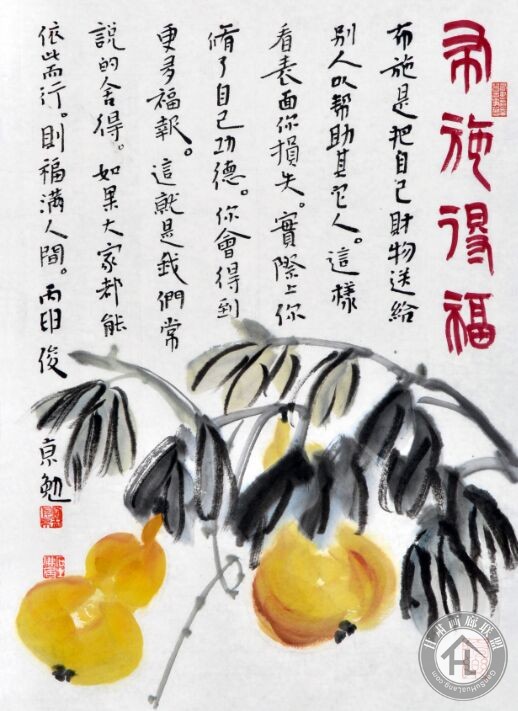 布施得福
布施是把自己財物送給
別人以幫助其它人。這樣
看表面你損失。實際上你
脩了自己功德。你會得到
更多福報。這就是我們常
說的舍得。如果大家都能
依此而行。則福滿人間。丙申俊
京勉
甘肃画廊联盟
GanSuHuaLang.com